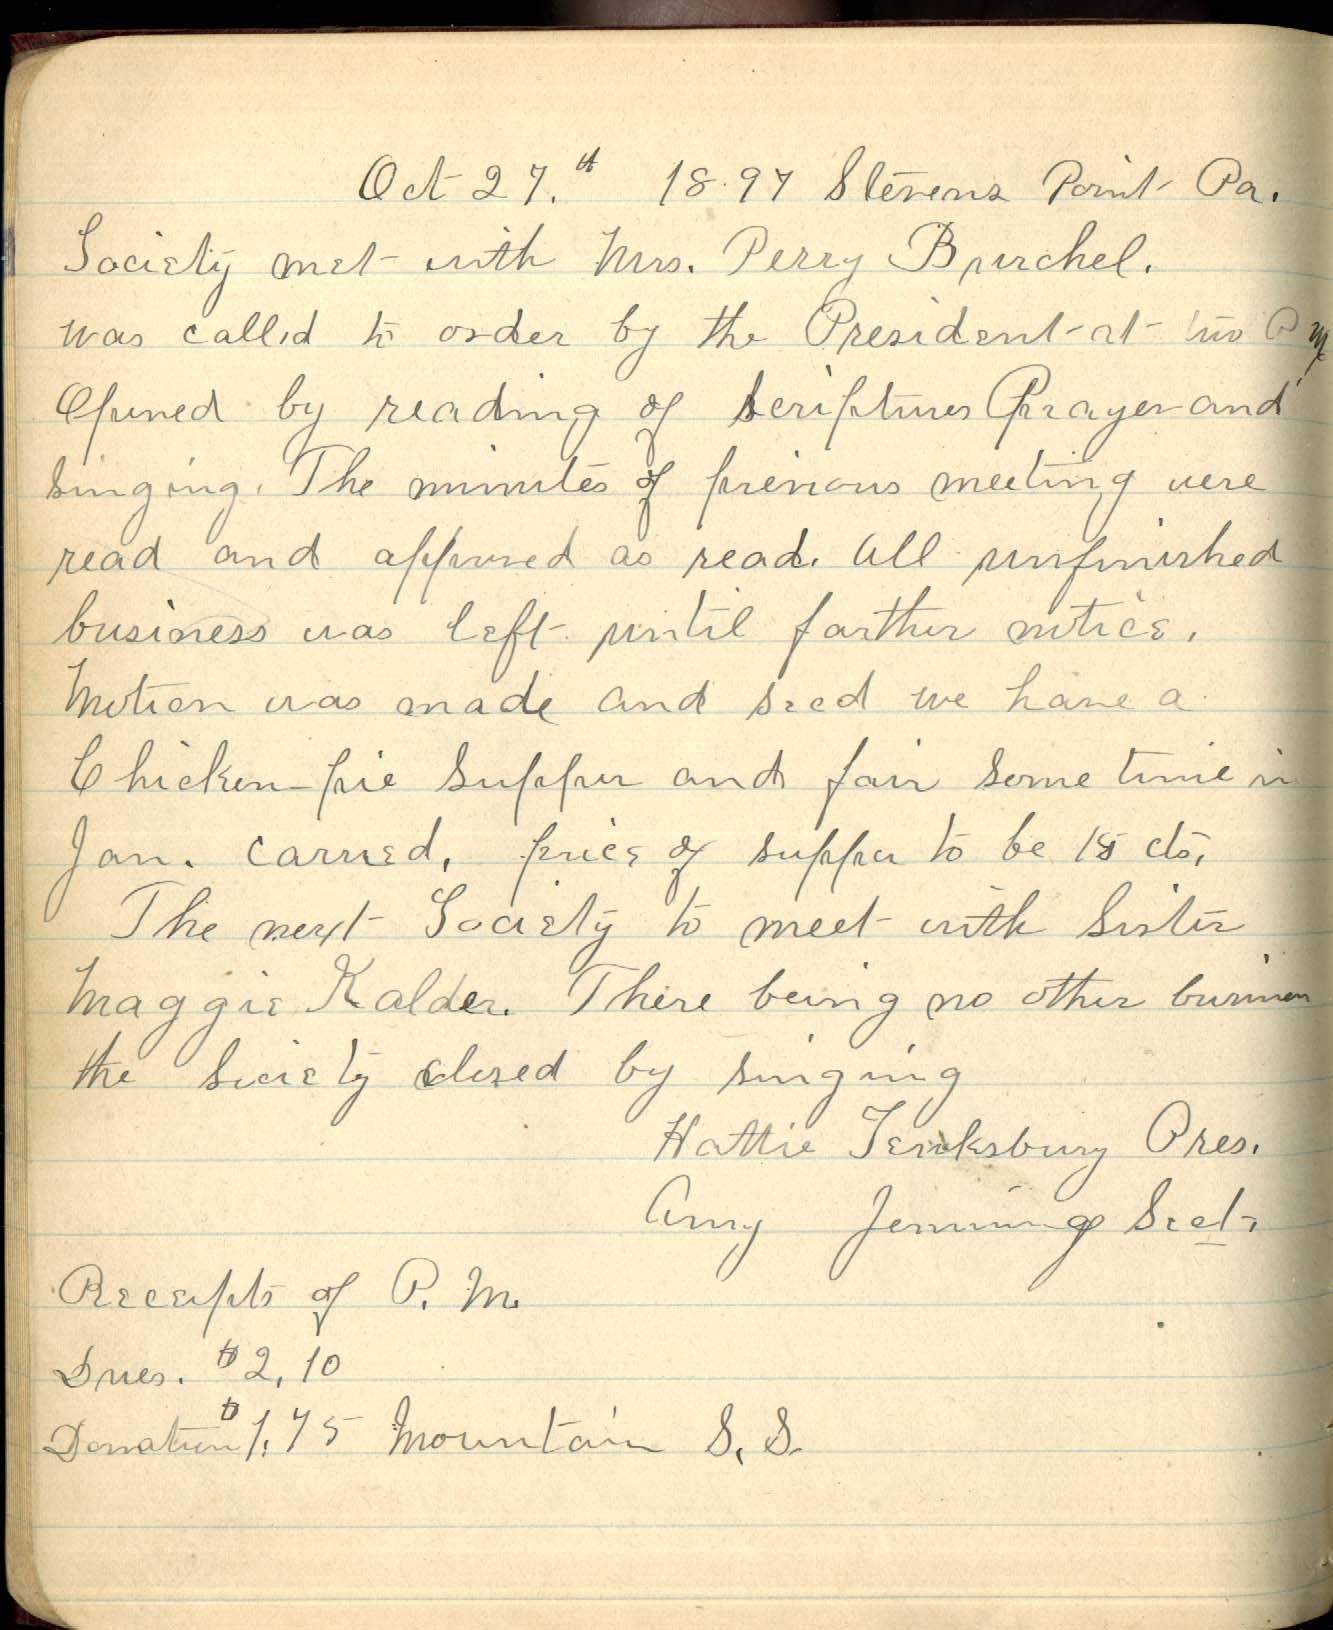 Oct 27.th 18.97 Stevens Point Pa.
Society met with Mrs. Perry Burchel.
was called to order by the President at two P M
Opened by reading of Scriptures Prayer and
singing. The minutes of previous meeting were
read and approved as read. All unfinished
business was left until farther notice.
Motion was made and secd we have a
Chicken-pie Supper and fair some time in
Jan. carried. price of supper to be 15 cts.
The next Society to meet with Sister
Maggie Kalder. There being no other business
the Society closed by singing
Hattie Tewksbury Pres.
Amy Jennings Sect.
Receipts of P. M.
Dues. $2.10
Donation $1.75 Mountain S. S.